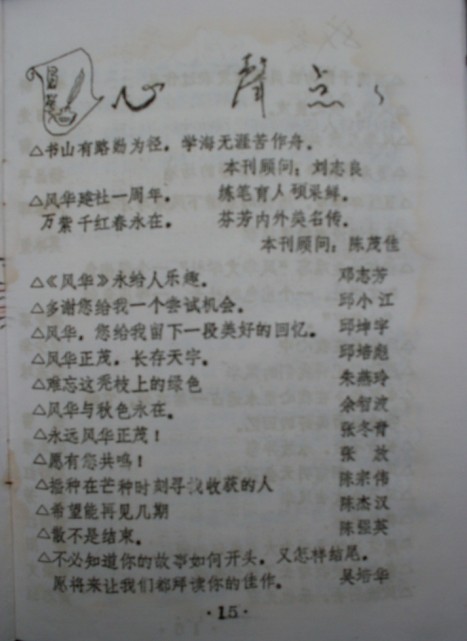 心聲点点
△书山有路勤为径，学海无涯苦作舟。
本刊顾问：刘志良
△风华建社一周年，练笔育人硕果鲜。
万紫千红春永在，芬芳内外美名传。
本刊顾问：陈茂佳
△《风华》永给人乐趣。 邓志芳
△多谢您给我一个尝试机会。 邱小江
△风华，您给我留下一段美好的回忆。 邱坤宇
△风华正茂，长存天宇。 邱培彪
△难忘这秃枝上的绿色 朱燕玲
△风华与秋色永在。 余智波
△永远风华正茂！ 张冬青
△愿有您共鸣！ 张 放
△播种在芒种时刻寻找收获的人 陈宗伟
△希望能再见几期 陈杰汉
△散不是结束。 陈强英
△不必知道你的故事如何开头，又怎样结尾。
愿将来让我们都拜读你的佳作。 吴培华
·15·